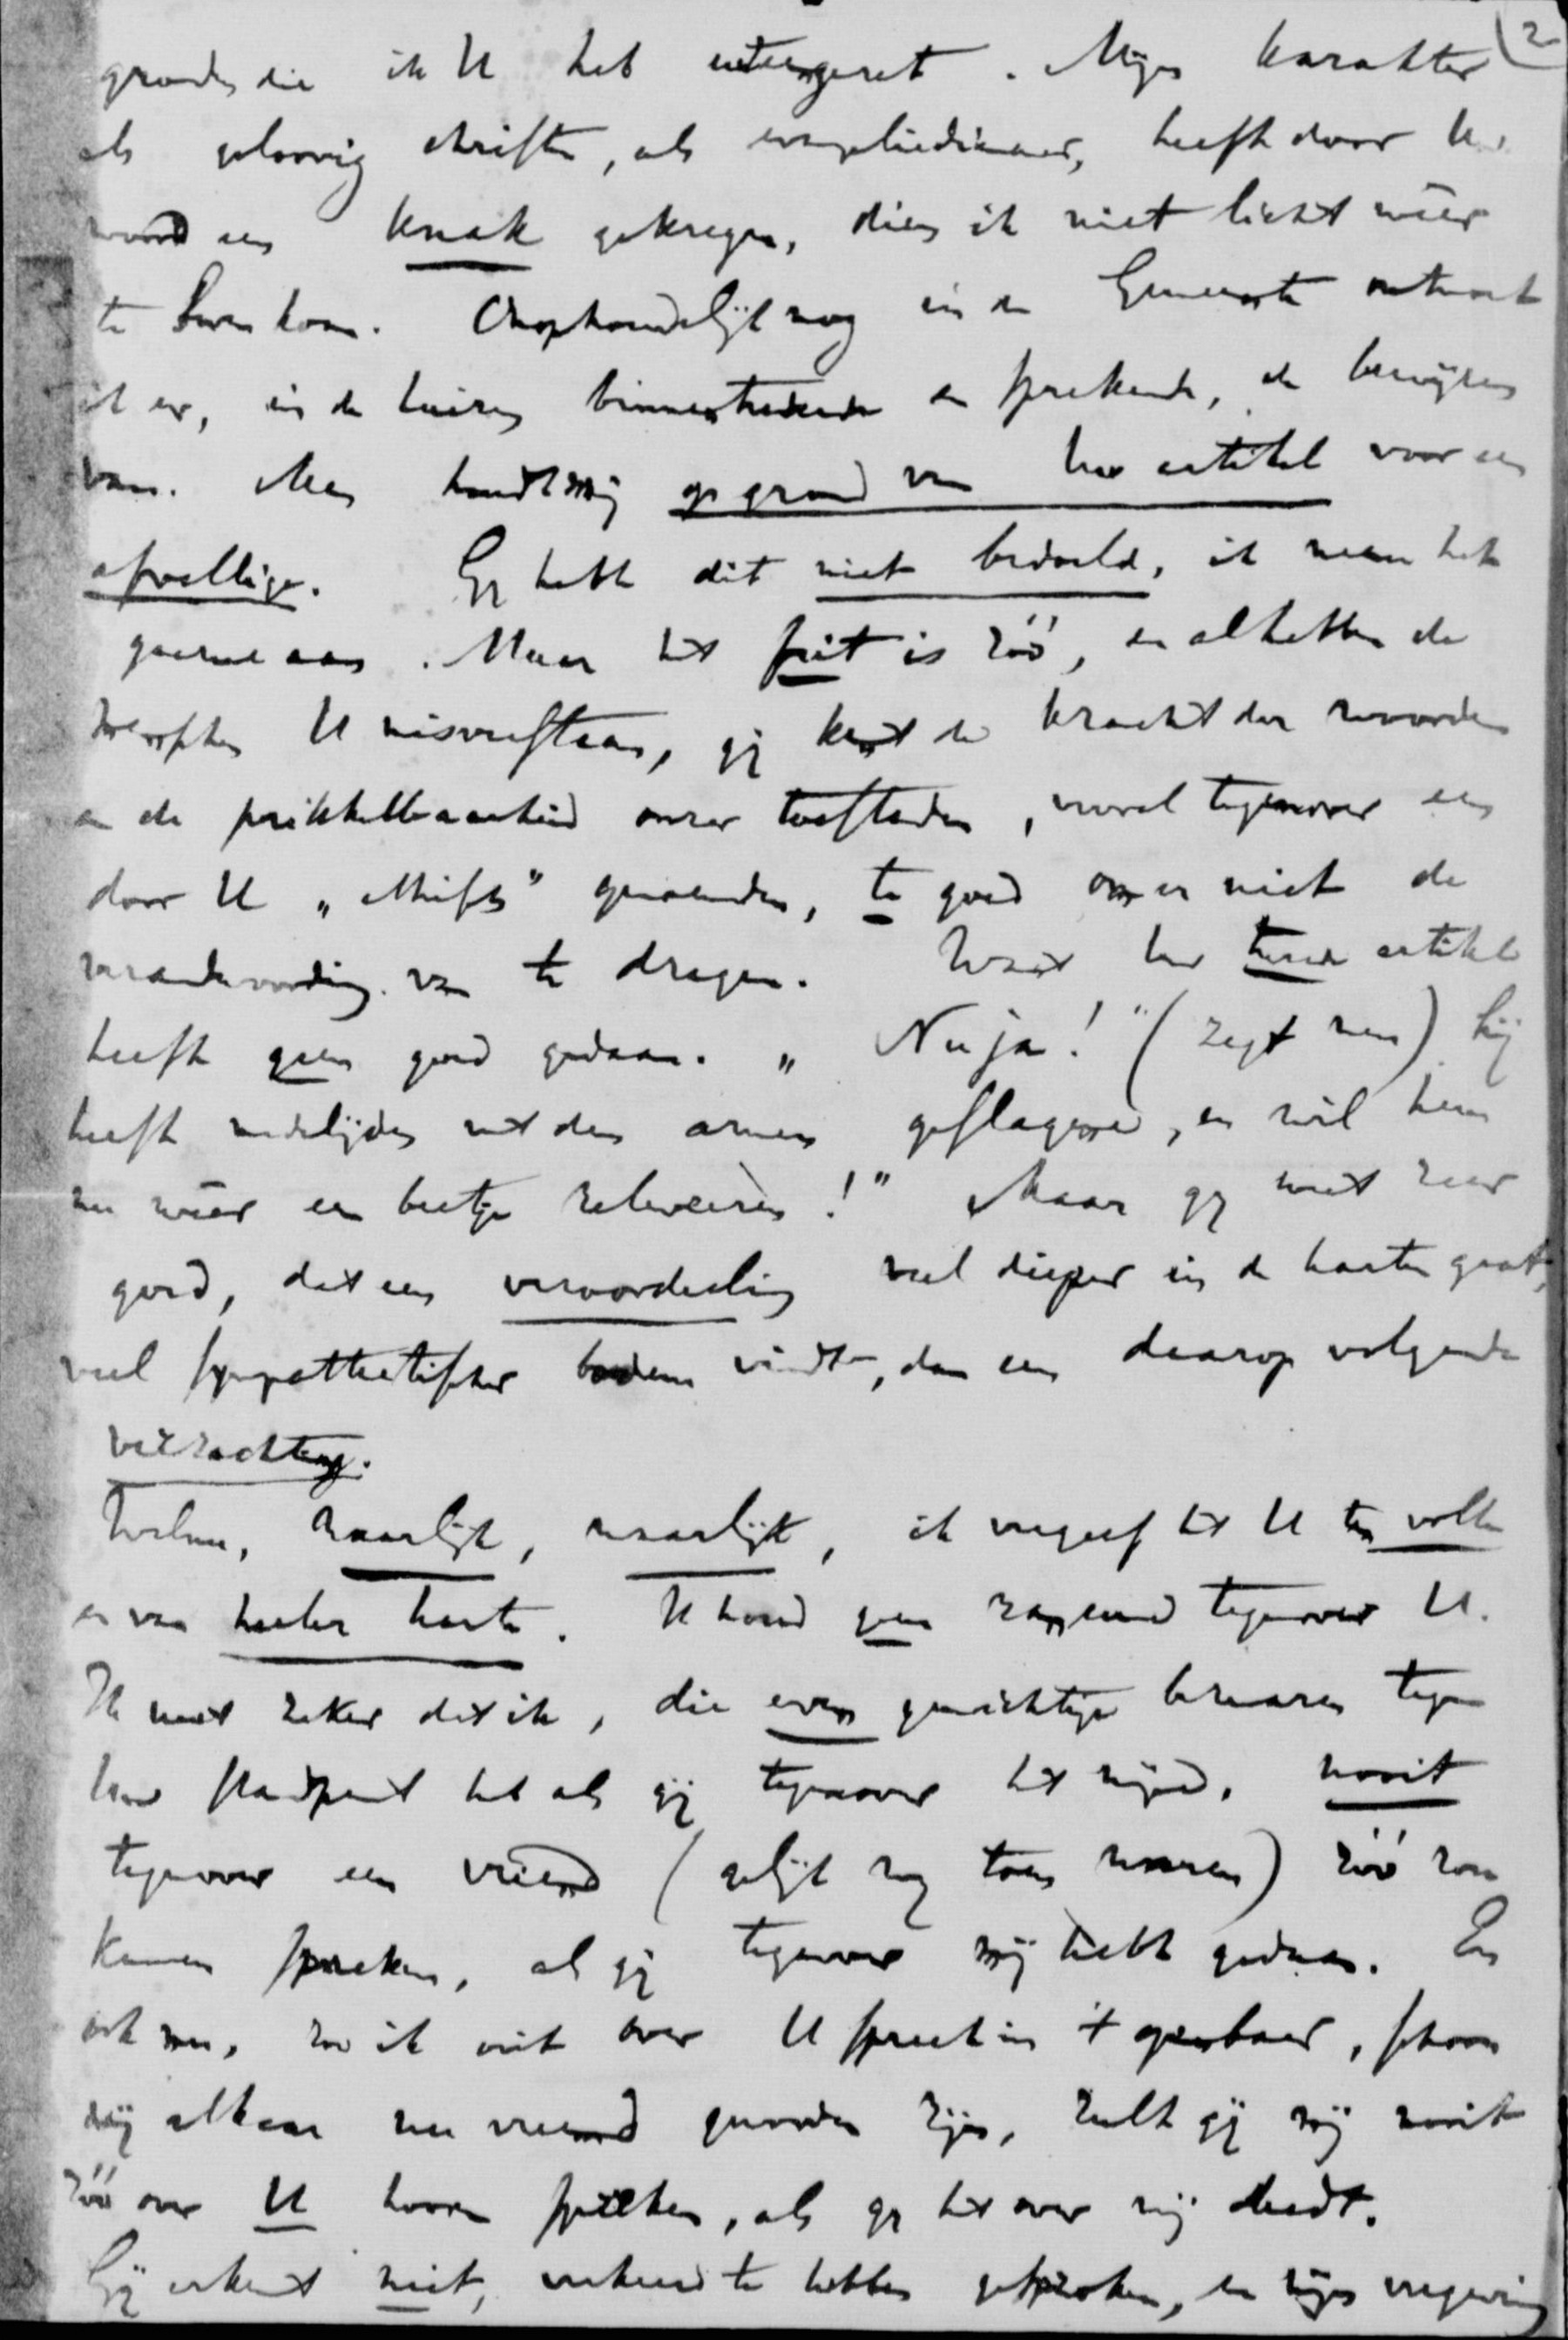 2
gronden die ik U heb uiteengezet. Mijn karakter
als geloovig christen, als evangeliedienaar, heeft door Uw
woord een knak gekregen, dien ik niet licht wêer
te boven kom. Onophoudelijk nog in de Gemeente ontmoet
ik er, in de huizen binnentredende en sprekende, de bewijzen
van. Men houdt mij op grond van Uw artikel voor een
afvallige. Gij hebt dit niet bedoeld, ik neem het
gaarne aan. Maar het feit is zóó, en al hebben de
menschen U misverstaan, gij kent de kracht der woorden
en de prikkelbaarheid onzer toestanden, vooral tegenover een
door U „Ethisch" genoemden, te goed om er niet de
verantwoording van te dragen. Want Uw tweede artikel
heeft geen goed gedaan. „Nu ja!" (zegt men) hij
heeft medelijden met den armen geslagene, en wil hem
nu wêer een beetje releveeren!" Maar gij weet zeer
goed, dat een veroordeeling veel dieper in de harten gaat,
veel sympathetischer bodem vindt, dan een daarop volgende
verzachting.
Welnu, waarlijk, waarlijk, ik vergeef het U ten volle
en van heeler harte. Ik houd geen rancune tegenover U.
Ik weet zeker dat ik, die even gewichtige bezwaren tegen
Uw standpunt heb als gij tegenover het mijne, nooit
tegenover een vriend (gelijk wij toen waren) zóó zou
kunnen spreken, als gij tegenover mij hebt gedaan. En
ook nu, zoo ik ooit over U spreek in 't openbaar, schoon
wij elkaar nu vreemd geworden zijn, zult gij mij nooit
zóó over U hooren spreken, als gij het over mij deedt.
Gij erkent niet, verkeerd te hebben gesproken, en mijn vergeving